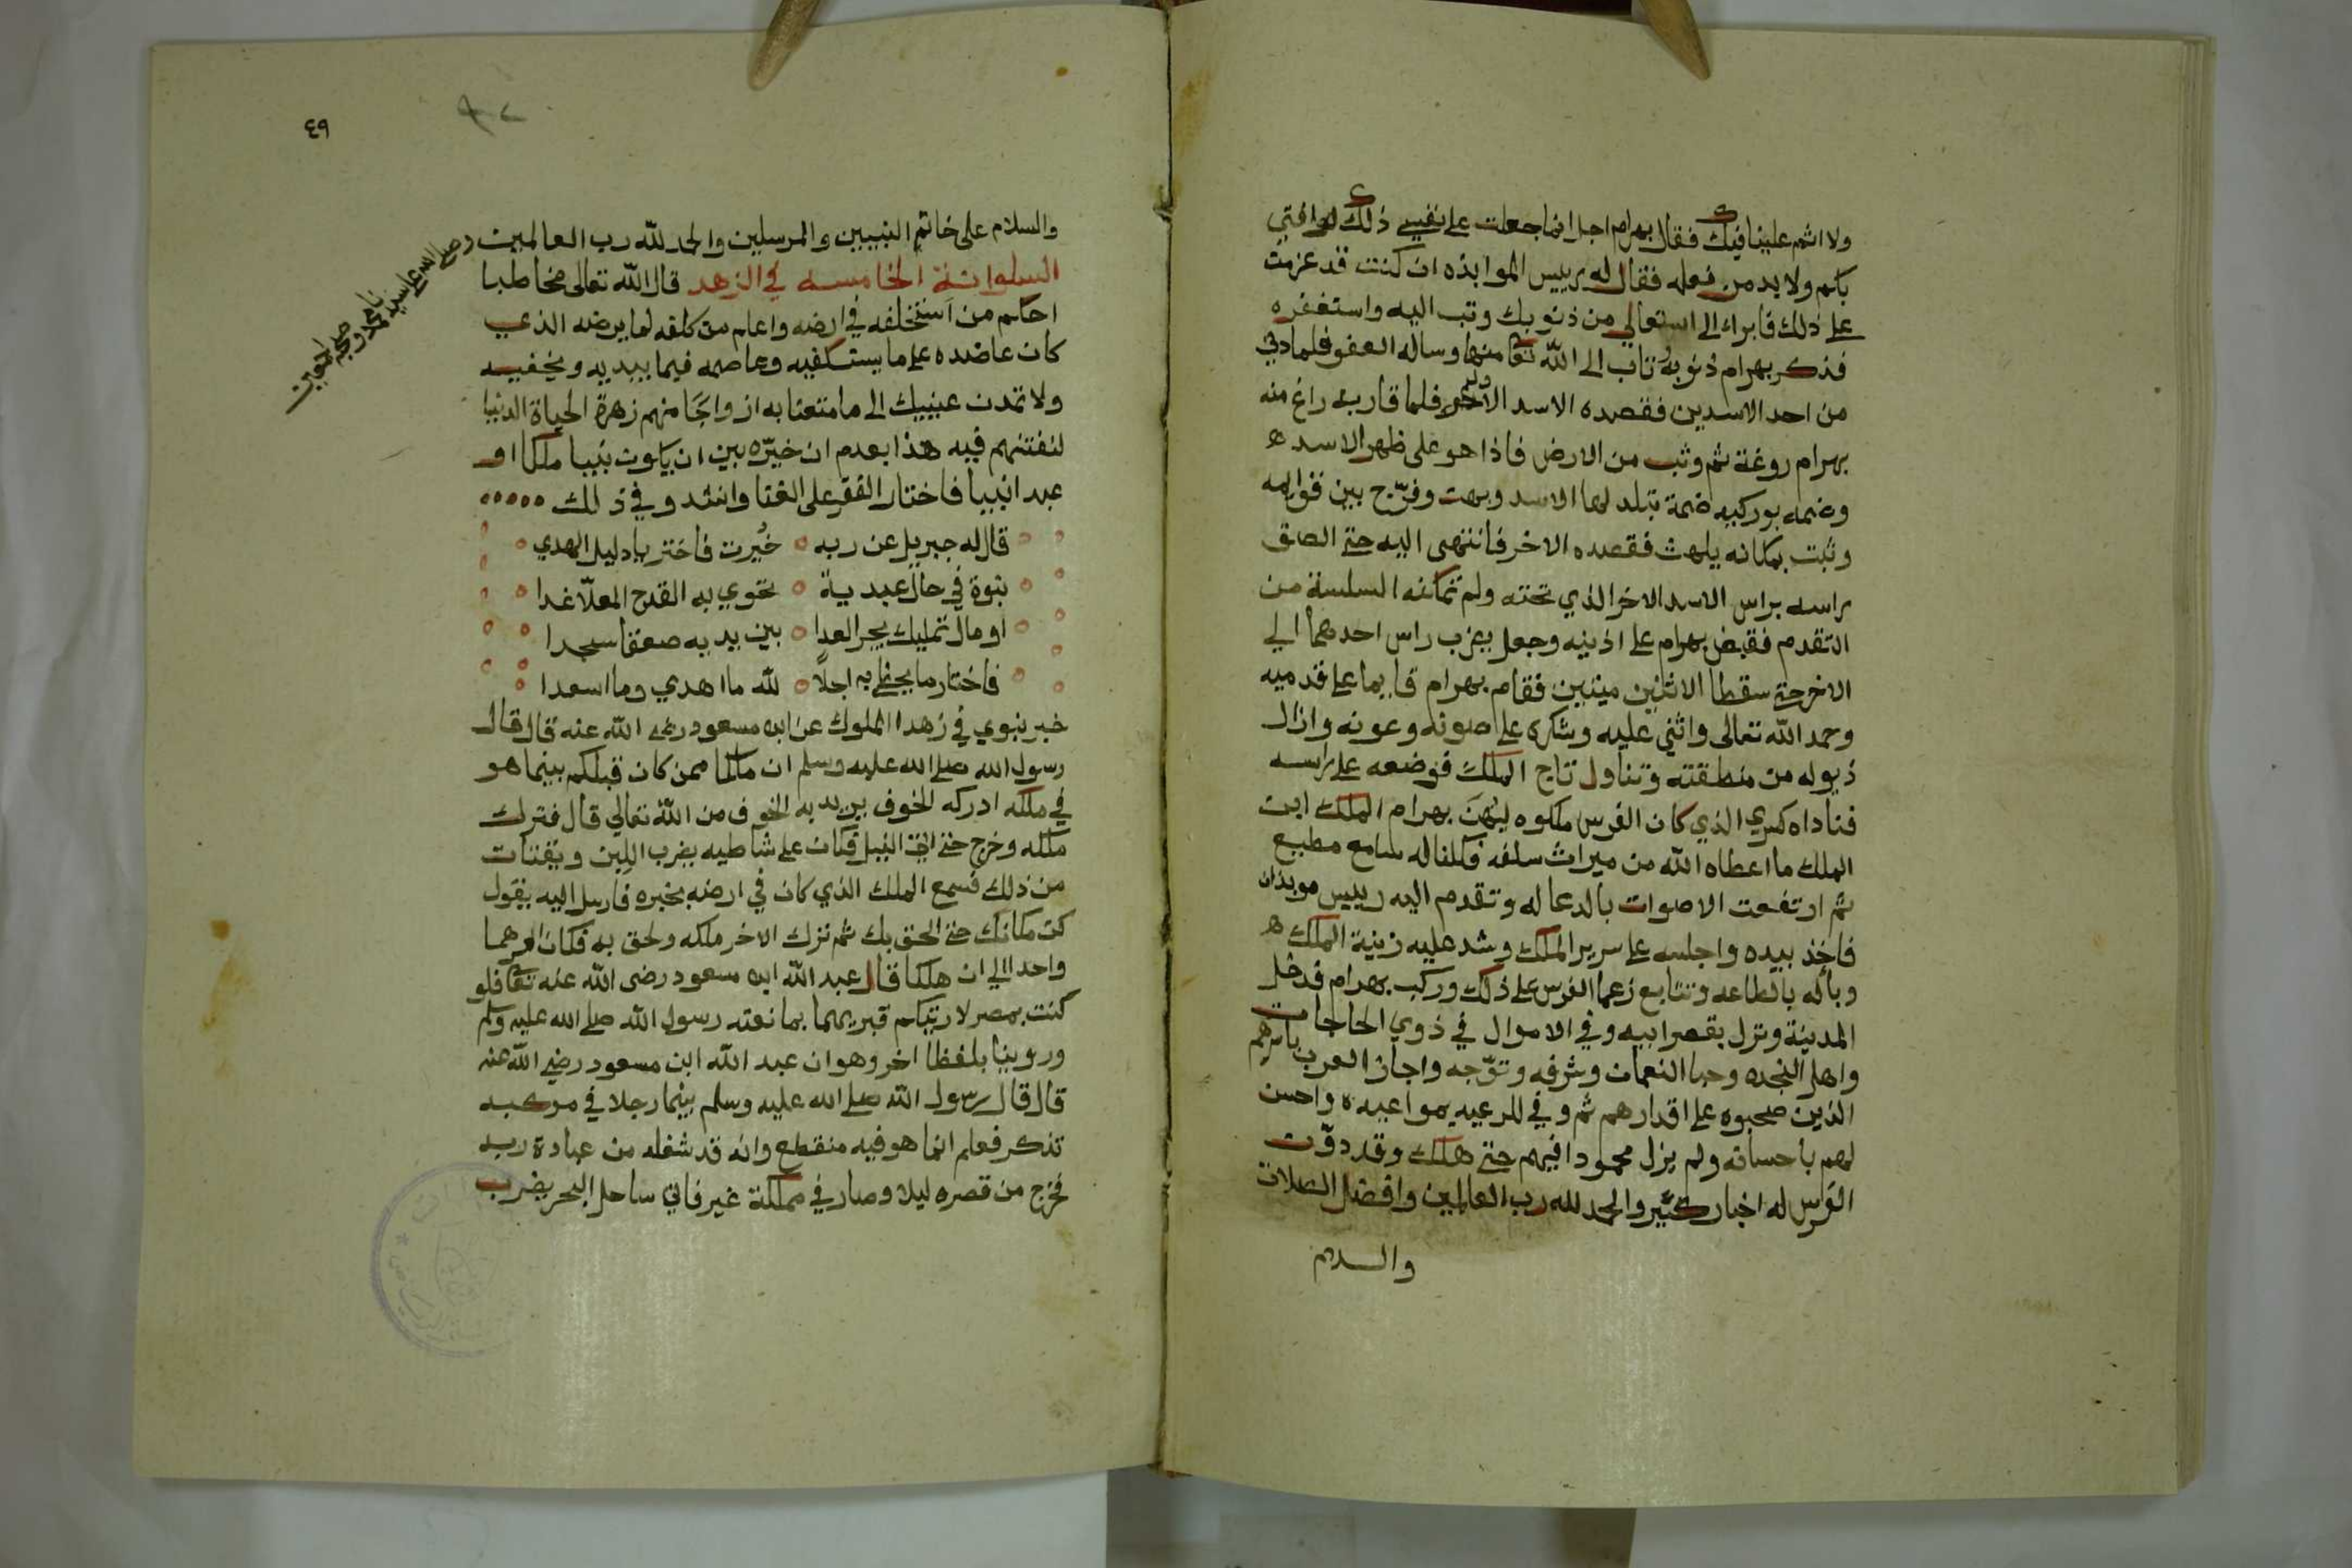 ولا اثم علينا فيك فقال بهرام اجل انما جعلت على نفسي ذلك لموافتي
بكم ولا بد من فعله فقال له رييس الموابذه ان كنت قد عزمت
على ذلك فابرا الى الله تعالي من ذنوبك وتب اليه واستغفره
فذكر بهرام ذنوبه وتاب الى الله تعا منها وساله العفو فلما دني
من احد الاسدين فقصده الاسد الاخر فلما قاربه راغ منه
بهرام روغة ثم وثب من الارض فاذا هو على ظهر الاسد
وضمه بوركيه ضمة تبلد لها الاسد وبهت وفرّج بين قوايمه
وثبت بمكانه يلهث فقصده الاخر فانتهى اليه حتي الصق
راسه براس الاسد الاخر الذي تحته ولم تمكنه السلسلة من
التقدم فقبض بهرام على اذنيه وجعل يضرب راس احدهما الي
الاخر حتي سقطا الاثنين ميتين فقام بهرام قايما على قدميه
وحمد الله تعالى واثني عليه وشكره على صونه وعونه وازال
ذيوله من منطقته وتناول تاج الملك فوضعه على راسه
فناداه كسري الذي كان الفرس ملكوه ليُهنَ بهرام الملك ابن
الملك ما اعطاه الله من ميراث سلفه فكلنا له سامع مطيع
ثم ارتفعت الاصوات بالدعا له وتقدم اليه رييس موبذان
فاخذ بيده واجلسه على سرير الملك وشد عليه زينة الملك
وبأله بالطاعه وتتابع زعما الفرس على ذلك وركب بهرام فدخل
المدينة ونزل بقصر ابيه وفي الاموال في ذوي الحاجات
واهل النجده وحبا النعمان وشرفه وتوّجه واجاز العرب باسرهم
الذين صحبوه على اقدارهم ثم وفي للرعيه بمواعيده واحسن
لهم باحسانه ولم يزل محمودا فيهم حتي هلك وقد دوّنت
الفرس له اخبار كثير والحمد لله رب العالمين وافضل الصلاة
والسلام
٤٩
والسلام على خاتم النبيين والمرسلين والحمد لله رب العالمين
وصلى الله على سيدنا محمد وصحبه اجمعين
السلوانة الخامسه في الزهد قال الله تعالى مخاطبا
احكم من استخلفه في ارضه واعلم من كلفه لما يرضه الذي
كان عاضده على ما يستكفيه وعاصمه فيما يبديه ويخفيه
ولا تمدن عينيك الى ما متعنا به ازواجًا منهم زهرة الحياة الدنيا
لنفتنهم فيه هذا بعدم ان خيّره بين ان يكون نبيا ملكا او
عبدا نبيا فاختار الفقر على الغنا وانشد و في ذلك
قال له جبريل عن ربه خُيرت فاختر يا دليل الهدي
نبوة في حال عبدية تحوي به القدح المعلّا غدا
او مال تمليك يجر العدا بين يديه صعقا سجدا
فاختار ما يحظى به اجلًا لله ما اهدي وما اسعدا
خبر نبوي في زهدا الملوك عن ابن مسعود رضى الله عنه قال قال
رسول الله صلى الله عليه وسلم ان ملكا ممن كان قبلكم بينما هو
في ملكه ادركه الخوف بين يديه الخوف من الله تعالي قال فترك
ملكه وخرج حتي اتي النيل فكان على شاطيه يضرب اللِبن ويقتات
من ذلك فسمع الملك الذي كان في ارضه بخبره فارسل اليه يقول
كن مكانك حتي الحق بك ثم نزل الاخر ملكه ولحق به فكان امرهما
واحدا الي ان هلكا قال عبد الله ابن مسعود رضى الله عنه تعا فلو
كنت بمصر لاريتكم قبريهما بما نعته رسول الله صلى الله عليه وسلم
وروينا بلفظا اخر وهو ان عبد الله ابن مسعود رضي الله عنه
قال قال رسول الله صلى الله عليه وسلم بينما رجلا في مركبه
تذكر فعلم انما هو فيه منقطع وانه قد شغله من عبادة ربه
فخرج من قصره ليلا وصار في مملكة غير فاتي ساحل البحر يضرب